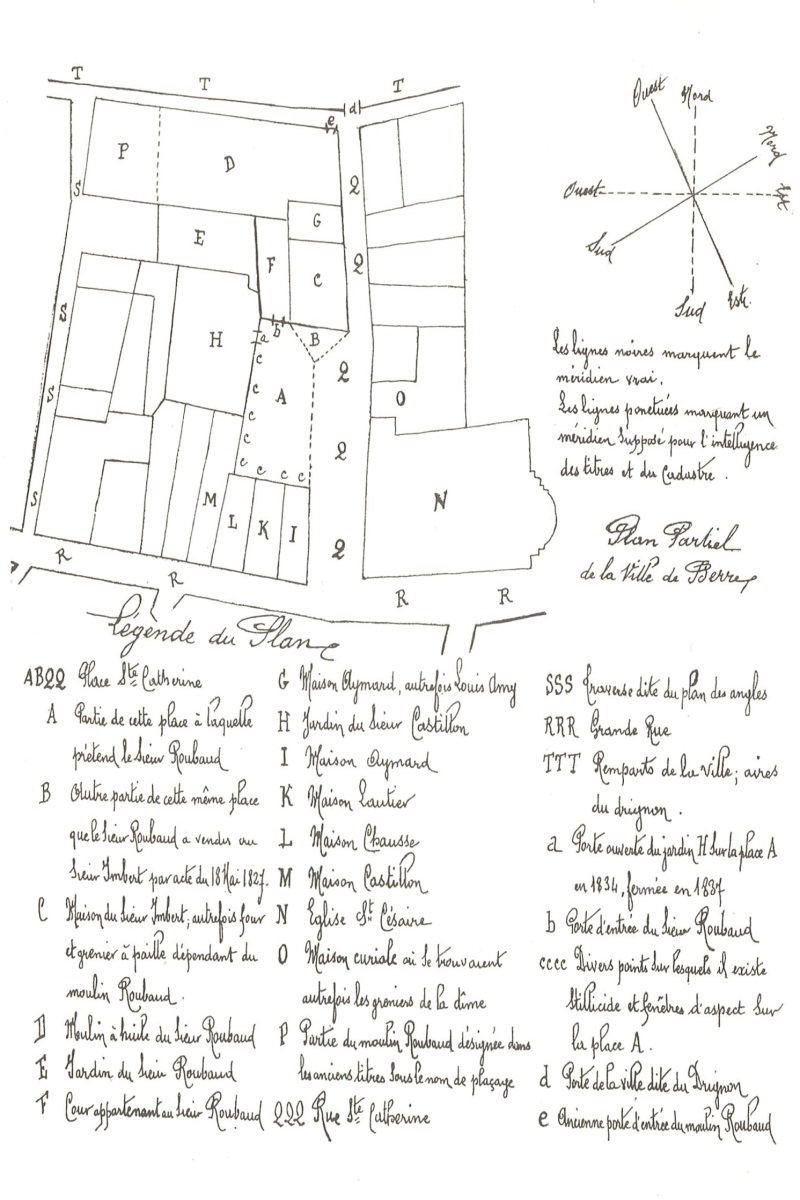 T
T
T
d
e
P
D
S
2
G
E
F
2
C
S
H
a
b
B
c
2
A
c
c
S
O
c
c
2
c
c
c
c
M
L
K
I
N
S
2
R
R
R
R
Ouest
Nord
Nord
Ouest
Est
Sud
Sud
Est
Les lignes noires marquent le
méridien vrai.
Les lignes ponctuées marquant un
méridien supposé pour l'intelligence
des titres et du Cadastre.
Plan Partiel
de la Ville de Berre
Légende du Plan
AB22 Place Ste Catherine
A Partie de cette place à laquelle
prétend le Sieur Roubaud
B Autre partie de cette même place
que le Sieur Roubaud a vendu au
Sieur Imbert par acte du 18 Mai 1827.
C Maison du Sieur Imbert, autrefois four
et grenier à paille dépendant du
moulin Roubaud.
D Moulin à huile du Sieur Roubaud
E Jardin du Sieur Roubaud
F Cour appartenant au Sieur Roubaud
G Maison Aymard, autrefois Louis Amy
H Jardin du Sieur Castillon
I Maison Aymard
K Maison Lautier
L Maison Chausse
M Maison Castillon
N Eglise St Césaire
O Maison curiale où se trouvaient
autrefois les greniers de la dîme
P Partie du moulin Roubaud désignée dans
les anciens titres sous le nom de plaçage
222 Rue Ste Catherine
SSS Traverse dite du plan des angles
RRR Grande Rue
TTT Remparts de la ville; aires
du drignon.
a Porte ouverte du jardin H sur la place A
en 1834, fermée en 1837
b Porte d'entrée du Sieur Roubaud
cccc Divers points sur lesquels il existe
stillicide et fenêtres d'aspect sur
la place A.
d Porte de la ville dite du Drignon
e Ancienne porte d'entrée du moulin Roubaud